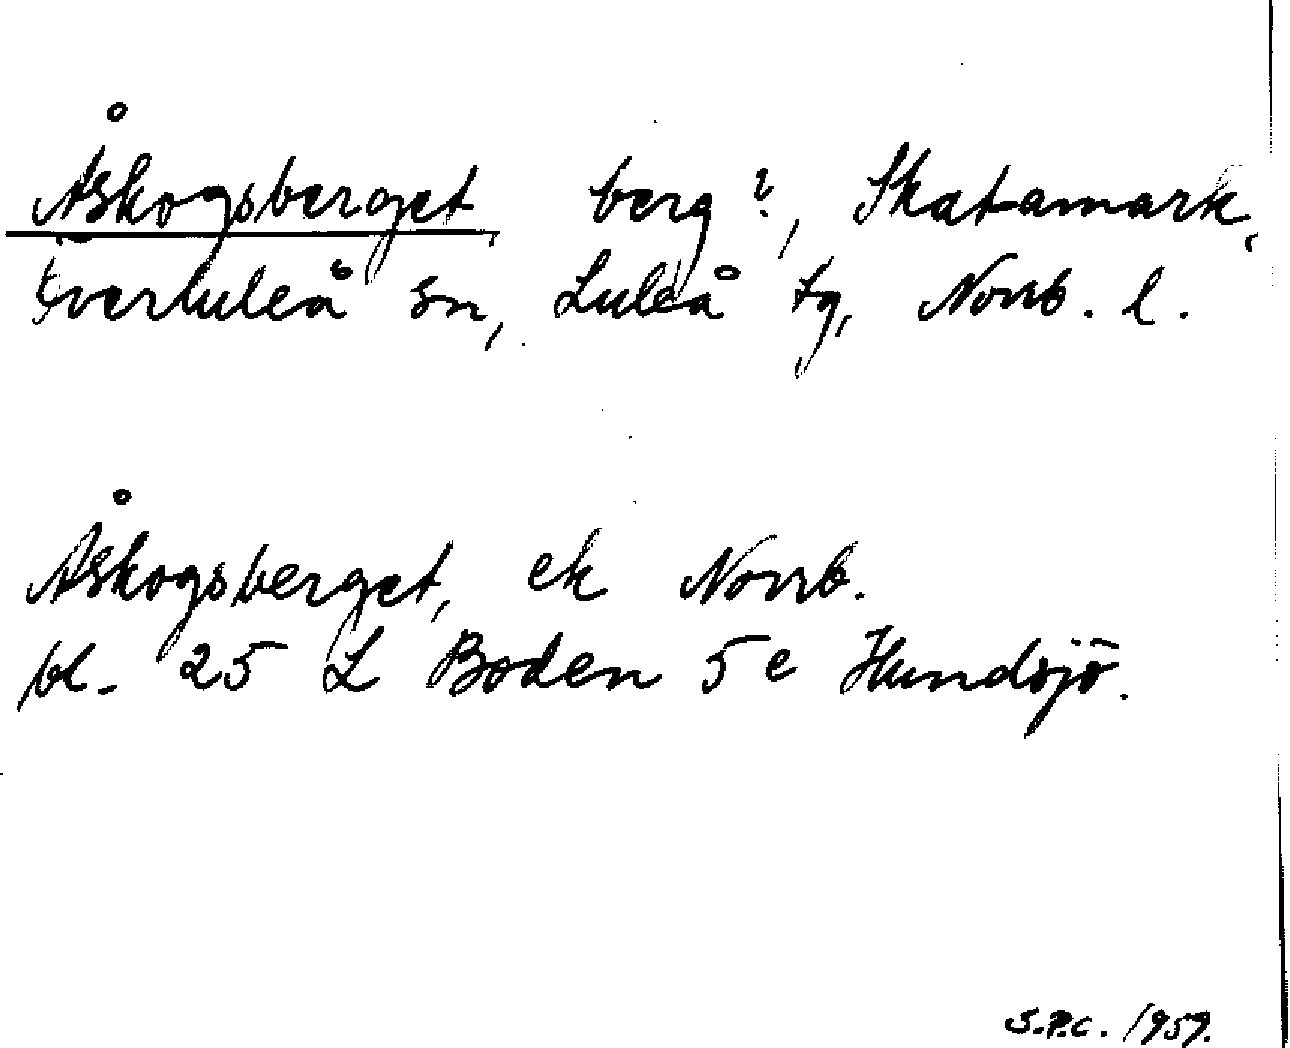 Åskogsberget berg?, Skatamark,
Överluleå sn, Luleå tg, Norrb. l.
Åskogsberget, ek Norrb.
bl. 25 L Boden 5 e Hundsjö.
S.P.C. 1959.